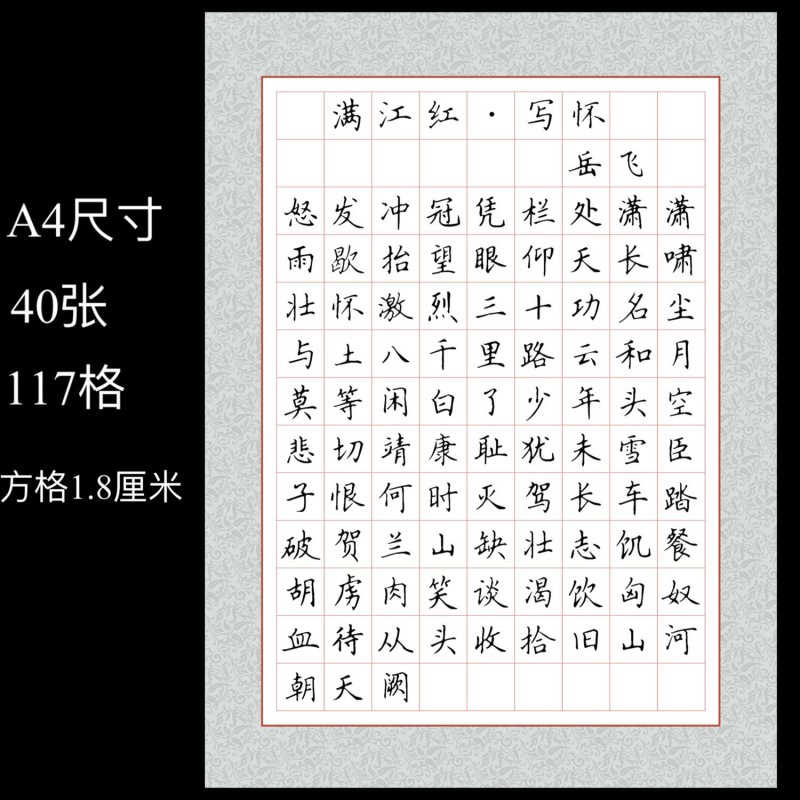 A4尺寸
40张
117格
方格1.8厘米
满江红·写怀
岳飞
怒发冲冠凭栏处潇潇
雨歇抬望眼仰天长啸
壮怀激烈三十功名尘
与土八千里路云和月
莫等闲白了少年头空
悲切靖康耻犹未雪臣
子恨何时灭驾长车踏
破贺兰山缺壮志饥餐
胡虏肉笑谈渴饮匈奴
血待从头收拾旧山河
朝天阙